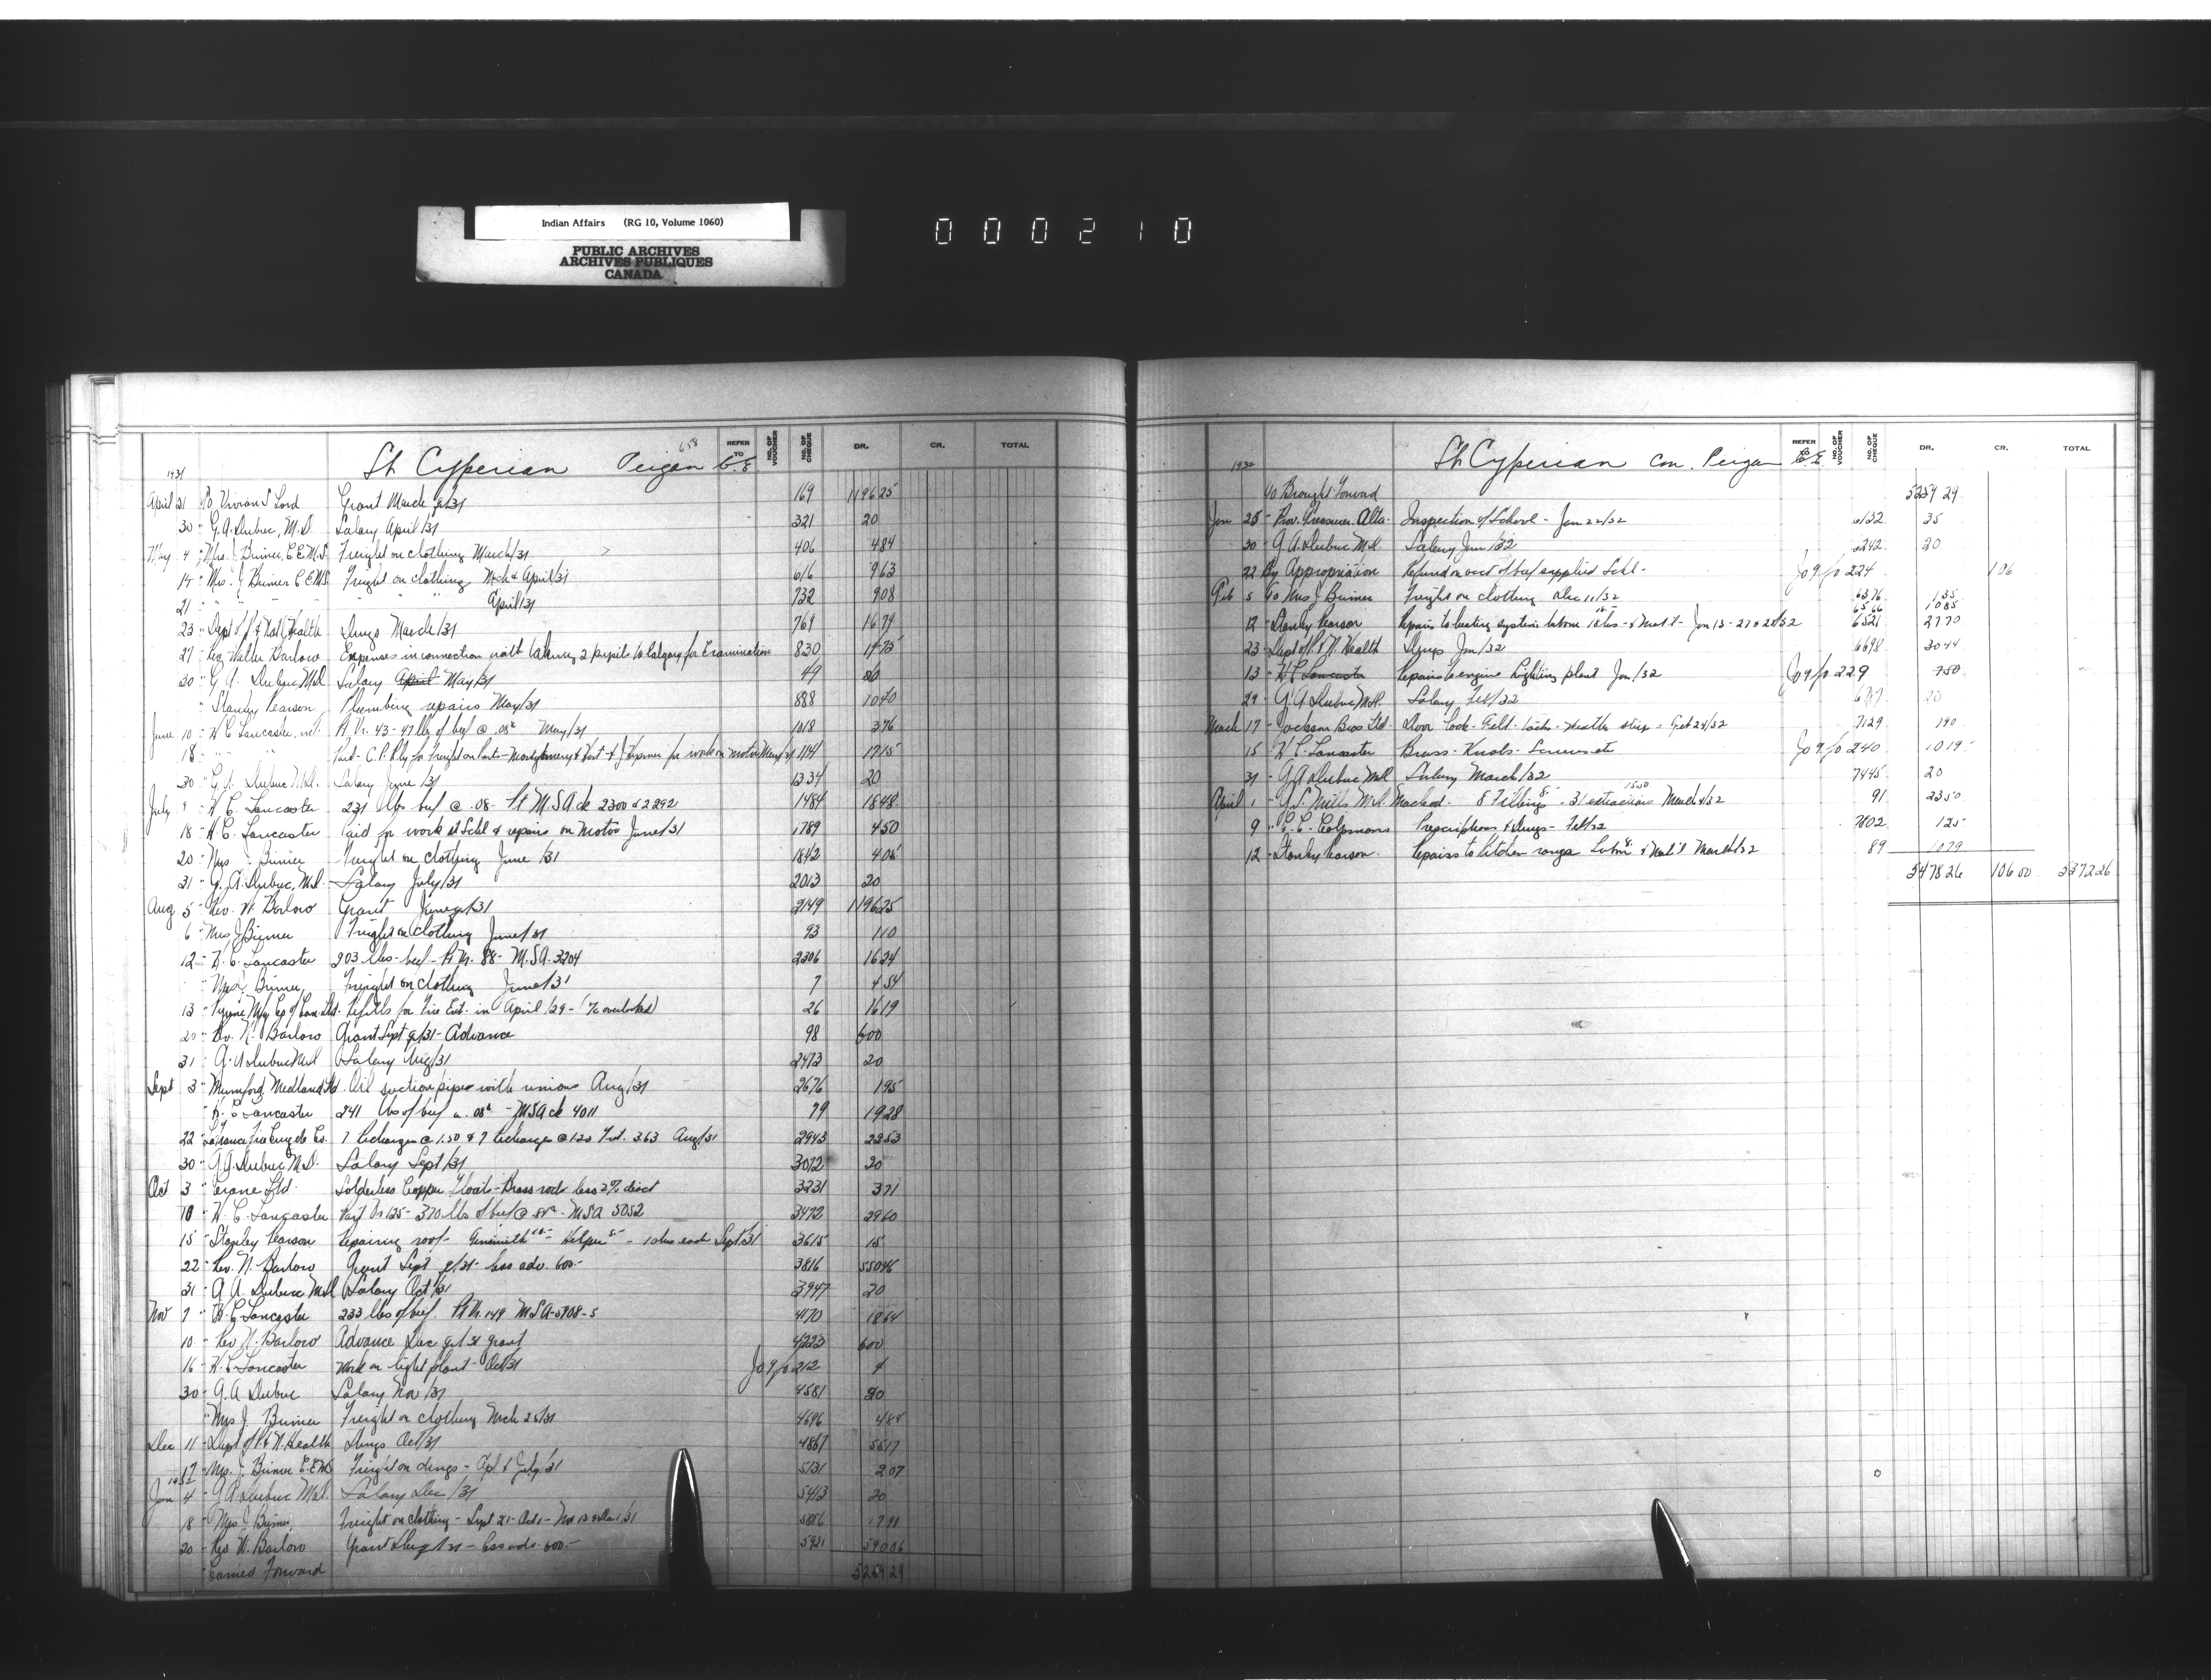 Indian Affairs (RG 10, Volume 1060)
PUBLIC ARCHIVES
ARCHIVES PUBLIQUES
CANADA
000210
St Cyperian Peigan C.E. 658
REFER TO
NO. OF VOUCHER
NO. OF CHEQUE
DR. CR. TOTAL
1931
April 21 To Vivian S Lord Grant March qr/31 169 1196 25
30 " G. A. Dubuc, M.D Salary April/31 321 20
May 4 " Mrs. J. Bruner, C.E.M.S. Freight on clothing March/31 406 4 84
14 " Mrs. J Bruner C.E.M.S Freight on clothing Mch & April/31 616 9 63
21 " " " " " " " April/31 732 9 08
23 " Dept of P & Natl Health Drugs March/31 769 16 79
27 " Rev Walter Barlow Expenses in connection with taking 2 pupils to Calgary for Examination 830 17 75
30 " G A Dubuc M.D Salary April May/31 49 20
" Stanley Pearson Plumbing repairs May/31 888 10 40
June 10 " H C Lancaster, Pt Vr. 43 - 47 lbs of beef @ .08¢ May/31 1018 3 76
18 " " " Paid - C.P. Rly for freight on parts - Montgomery & for work on motor May/31 1114 17 15
30 " G. A. Dubuc M.D. Salary June/31 1334 20
July 9 " H C. Lancaster 231 lbs beef @ .08 - M.S.A ck 2300 & 2292 1484 18 48
18 " H. C. Lancaster Paid for work at Schl & repairs on Motor June/31 1789 4 50
20 " Mrs J. Bruner Freight on clothing June/31 1842 4 05
31 " G. A. Dubuc, M.D. Salary July/31 2013 20
Aug. 5 " Rev. W. Barlow Grant June qr/31 2149 1196 25
6 " Mrs J Bruner Freight on clothing June/31 93 1 10
12 " H. C. Lancaster 203 lbs beef - Pt Vr. 88 - M.S.A. 3204 2306 16 24
" Mrs J. Bruner Freight on clothing June/31 7 4 54
13 " Pyrene Mfg Co of Can. Ltd. Refills for Fire Ext. in April/29 - (a/c overlooked) 26 16 19
20 " Rev. W. Barlow Grant Sept qr/31 - Advance 98 600
31 " G. A Dubuc M.D Salary Aug/31 2473 20
Sept 3 " Mumford Medland Ltd. Oil suction pipes with unions Aug/31 2676 1 95
" H. C Lancaster 241 lbs of beef @ .08¢ - M.S.A ck 4011 79 19 28
22 " LaFrance Fire Engine Co. 7 Recharges @ 1.50 & 7 Recharges @ 1.20 Frt. 3.63 Aug/31 2943 22 53
30 " G A. Dubuc M.D. Salary Sept/31 3072 20
Oct 3 " Crane Ltd. Solderless Copper Floats - Brass rods less 2% disct 3231 3 71
10 " H. C. Lancaster Part Vr 125 - 370 lbs of beef @ .08¢ - M.S.A 5052 3472 29 60
15 " Stanley Pearson Repairing roof - Helper 5- - 10 hrs each Sept/31 3615 15
22 " Rev. W. Barlow Grant Sept qr/31 - less adv. 600.- 3816 550 46
31 " G A. Dubuc M.D Salary Oct/31 3947 20
Nov 7 " H. C Lancaster 233 lbs of beef. Pt Vr. 149 M.S.A - 5908 - s 4170 18 64
10 " Rev W. Barlow Advance Dec qr/31 grant 4223 600
16 " H. C Lancaster Work on light plant - Oct/31 Jo 9 fo 212 4
30 " G. A Dubuc Salary Nov/31 4581 20
" Mrs J. Bruner Freight on clothing Mch 25/31 4696 4 84
Dec 11 " Dept of P & N. Health Drugs Oct/31 4867 55 17
17 " Mrs. J. Bruner C.E.M.S Freight on drugs - Apl & July/31 5131 2 07
1932
Jan 4 " G A Dubuc M.D. Salary Dec/31 5413 20
18 " Mrs J Bruner, Freight on clothing - Sept 21 - Oct 1 - Nov 13 & Dec 1/31 5856 17 91
20 " Rev W. Barlow Grant Dec qr/31 - less adv. 600.- 5921 590 06
Carried Forward 5259 29
St Cyperian Con. Peigan C.E.
REFER TO
NO. OF VOUCHER
NO. OF CHEQUE
DR. CR. TOTAL
1932
To Brought Forward 5259 29
Jan 25 " Prov. Treasurer. Alta. Inspection of School - Jan 22/32 6132 35
30 " G. A. Dubuc M.D. Salary Jan/32 6242 20
22 By Appropriation Refund on acct of beef supplied Schl - Jo 9 fo 224 106
Feb 5 To Mrs J Bruner Freight on clothing Dec 11/32 6376 1 35
12 " Stanley Pearson Repairs to heating system labour & Mat'l - Jan 13 - 27 & 28/32 6521 27 70
23 " Dept of P. & N. Health Drugs Jan/32 6698 30 44
13 " H C Lancaster Repairs to engine Lighting plant Jan/32 Jo 9 fo 229 7 50
29 " G. A Dubuc M.D. Salary Feb/32 6767 20
March 17 " Jackson Bros Ltd. Door lock - Felt - weather strip - Feb 24/32 7129 1 90
15 " H C. Lancaster Brass - Knobs - Screws etc Jo 9 fo 240 10 19
31 " G A Dubuc M.D Salary March/32 7445 20
April 1 " G. S. Mills M.D. Macleod. 8 Fillings 8.- 31 extractions 15.50 March 4/32 91 23 50
9 " Prescriptions & Drugs - Feb/32 7802 1 25
12 " Stanley Pearson. Repairs to Kitchen range Labour & Mat'l March/32 89 10 29
5478 26 106 00 5372 26